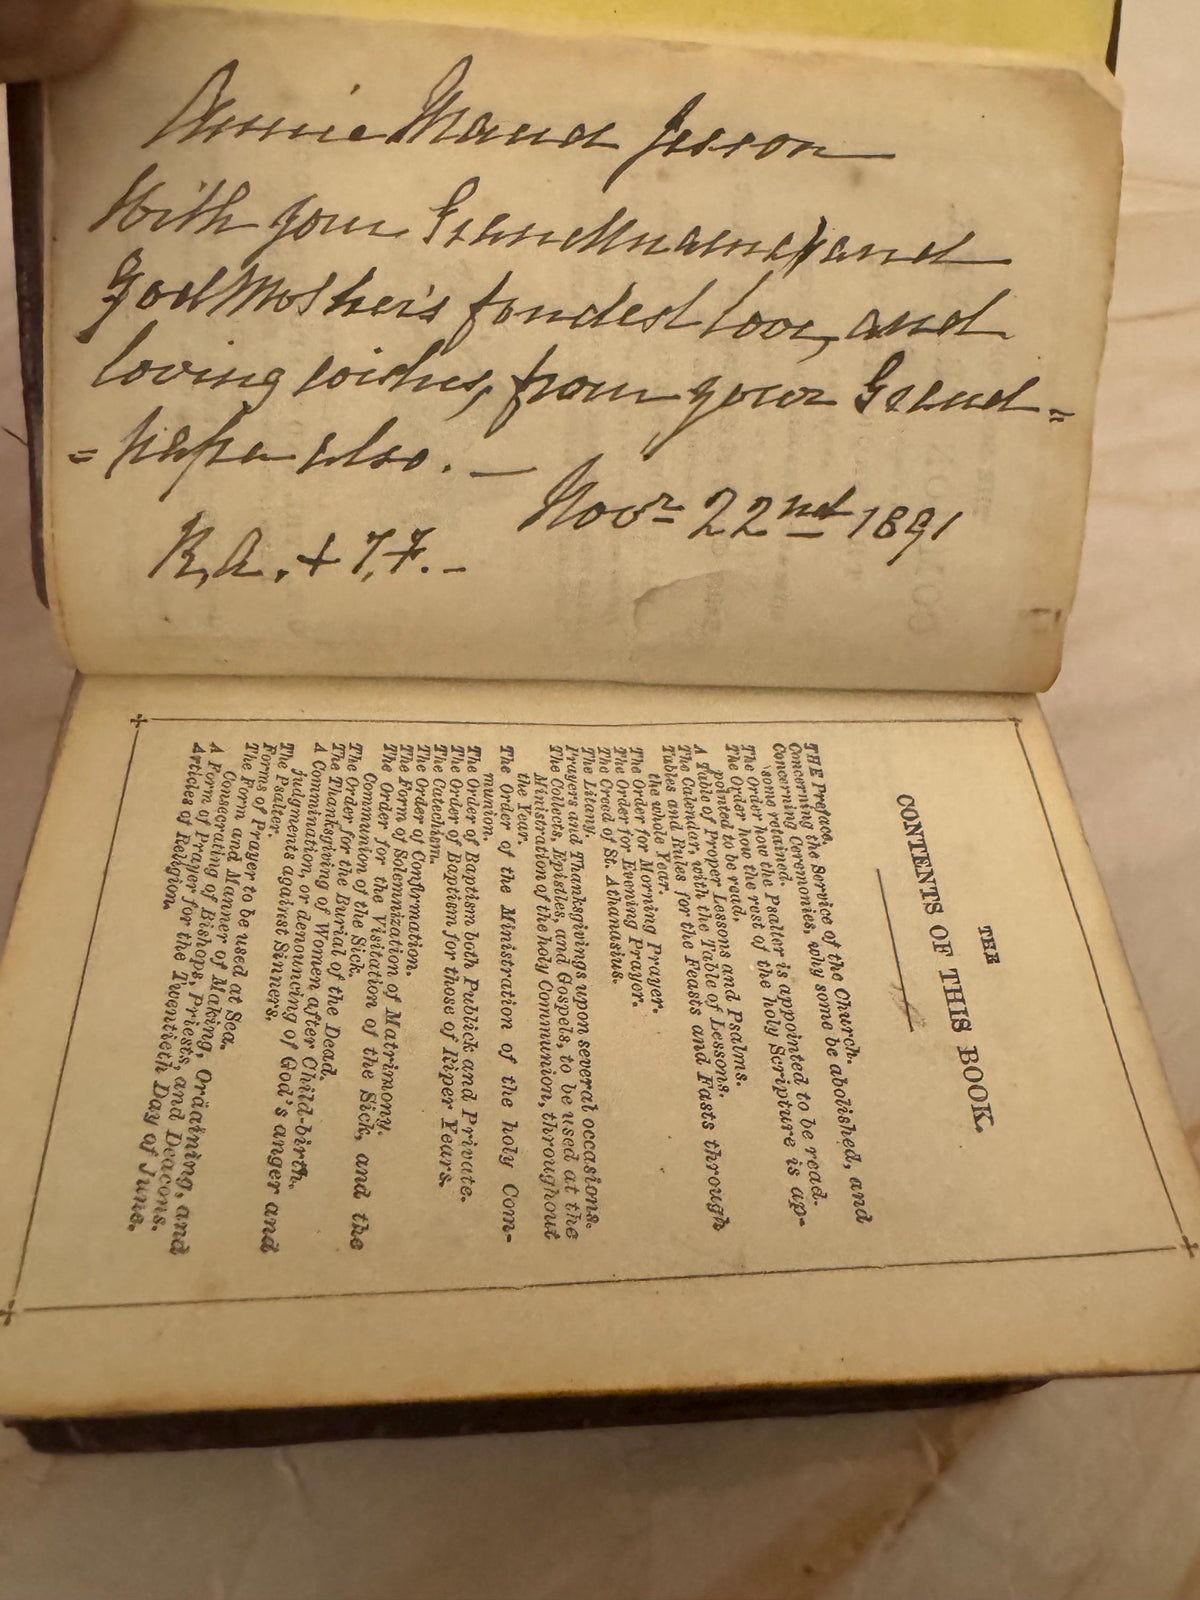 Annie Maud Jesson
With your Grandmama's and
GodMother's fondest love, and
loving wishes, from your Grand=
=papa also. —
Novr 22nd 1891
R, A. + 7, 7. –
THE
CONTENTS OF THIS BOOK.
THE Preface.
Concerning the Service of the Church.
Concerning Ceremonies, why some be abolished, and
some retained.
The Order how the Psalter is appointed to be read.
The Order how the rest of the holy Scripture is ap-
pointed to be read.
A Table of Proper Lessons and Psalms.
The Calendar, with the Table of Lessons.
Tables and Rules for the Feasts and Fasts through
the whole Year.
The Order for Morning Prayer.
The Order for Evening Prayer.
The Creed of St. Athanasius.
The Litany.
Prayers and Thanksgivings upon several occasions.
The Collects, Epistles, and Gospels, to be used at the
Ministration of the holy Communion, throughout
the Year.
The Order of the Ministration of the holy Com-
munion.
The Order of Baptism both Publick and Private.
The Order of Baptism for those of Riper Years.
The Catechism.
The Order of Confirmation.
The Form of Solemnization of Matrimony.
The Order for the Visitation of the Sick, and the
Communion of the Sick.
The Order for the Burial of the Dead.
The Thanksgiving of Women after Child-birth.
A Commination, or denouncing of God's anger and
judgments against Sinners.
The Psalter.
Forms of Prayer to be used at Sea.
The Form and Manner of Making, Ordaining, and
Consecrating of Bishops, Priests, and Deacons.
A Form of Prayer for the Twentieth Day of June.
Articles of Religion.